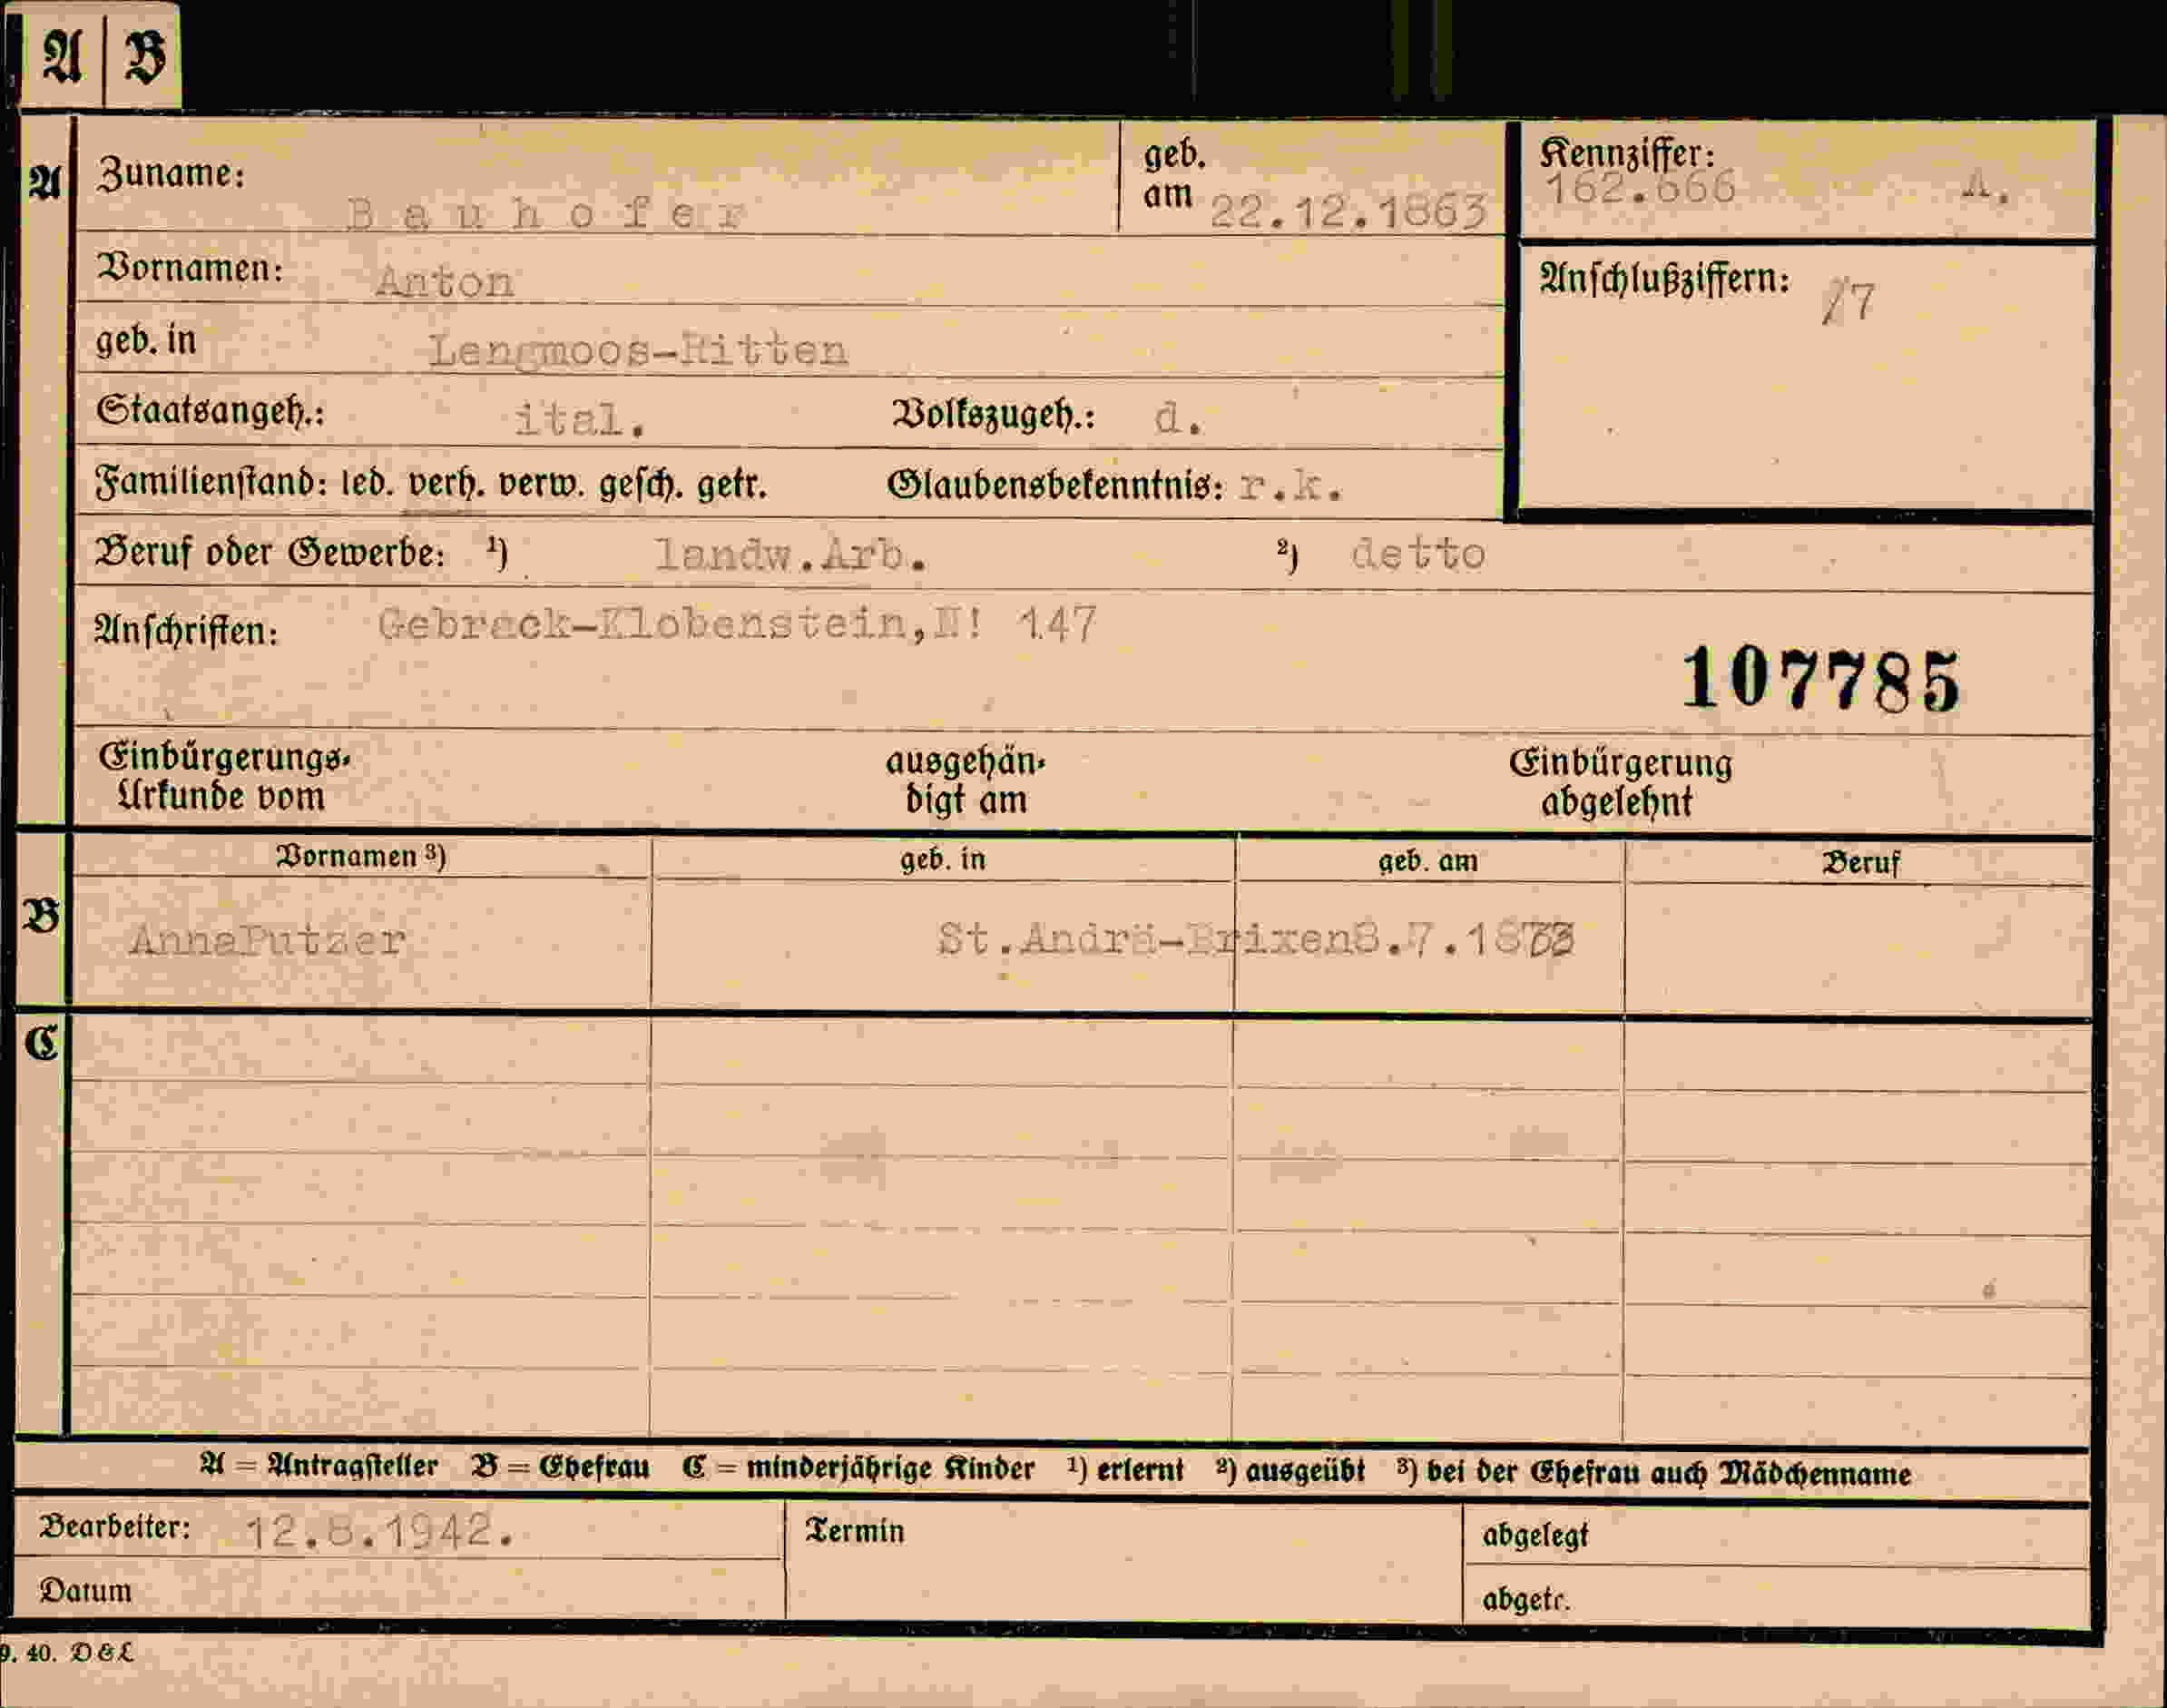 A B
A Zuname: Bauhofer geb. am 22.12.1863 Kennziffer: 162.666 A.
Vornamen: Anton Anschlußziffern: /7
geb. in Lengmoos-Ritten
Staatsangeh.: ital. Volkszugeh.: d.
Familienstand: led. verh. verw. gesch. getr. Glaubensbekenntnis: r.k.
Beruf oder Gewerbe: ¹) landw.Arb. ²) detto
Anschriften: Gebrack-Klobenstein,N! 147
107785
Einbürgerungs-Urkunde vom ausgehändigt am Einbürgerung abgelehnt
Vornamen ³) geb. in geb. am Beruf
B AnnaPutzer St.Andrä-Brixen 8.7.1873
C
A = Antragsteller B = Ehefrau C = minderjährige Kinder ¹) erlernt ²) ausgeübt ³) bei der Ehefrau auch Mädchenname
Bearbeiter: 12.8.1942. Termin abgelegt
Datum abgetr.
9. 40. D&L